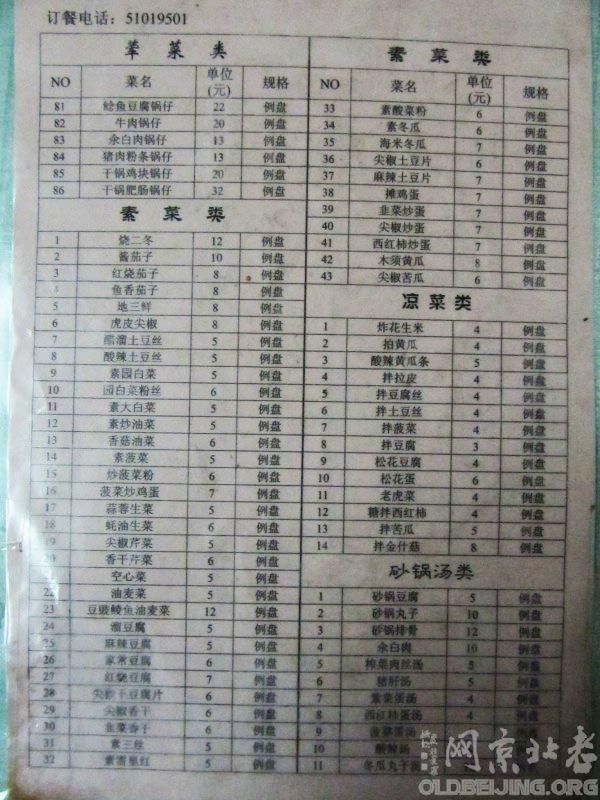 订餐电话：51019501
荤菜类
NO 菜名 单位(元) 规格
81 鲶鱼豆腐锅仔 22 例盘
82 牛肉锅仔 20 例盘
83 汆白肉锅仔 13 例盘
84 猪肉粉条锅仔 13 例盘
85 干锅鸡块锅仔 20 例盘
86 干锅肥肠锅仔 32 例盘
素菜类
1 烧二冬 12 例盘
2 酱茄子 10 例盘
3 红烧茄子 8 例盘
4 鱼香茄子 8 例盘
5 地三鲜 8 例盘
6 虎皮尖椒 8 例盘
7 醋溜土豆丝 5 例盘
8 酸辣土豆丝 5 例盘
9 素园白菜 5 例盘
10 园白菜粉丝 6 例盘
11 素大白菜 5 例盘
12 素炒油菜 5 例盘
13 香菇油菜 6 例盘
14 素菠菜 5 例盘
15 炒菠菜粉 6 例盘
16 菠菜炒鸡蛋 7 例盘
17 蒜蓉生菜 5 例盘
18 蚝油生菜 6 例盘
19 尖椒芹菜 5 例盘
20 香干芹菜 6 例盘
空心菜 5 例盘
22 油麦菜 5 例盘
23 豆豉鲮鱼油麦菜 12 例盘
24 溜豆腐 5 例盘
25 麻辣豆腐 5 例盘
26 家常豆腐 6 例盘
27 红烧豆腐 7 例盘
28 尖椒干豆腐片 6 例盘
29 尖椒香干 6 例盘
30 韭菜香干 6 例盘
31 素三丝 5 例盘
32 素雪里红 5 例盘
素菜类
NO 菜名 单位(元) 规格
33 素酸菜粉 6 例盘
34 素冬瓜 6 例盘
35 海米冬瓜 7 例盘
36 尖椒土豆片 6 例盘
37 麻辣土豆片 7 例盘
38 摊鸡蛋 7 例盘
39 韭菜炒蛋 7 例盘
40 尖椒炒蛋 7 例盘
41 西红柿炒蛋 7 例盘
42 木须黄瓜 8 例盘
43 尖椒苦瓜 6 例盘
凉菜类
1 炸花生米 4 例盘
2 拍黄瓜 4 例盘
3 酸辣黄瓜条 5 例盘
4 拌拉皮 4 例盘
5 拌豆腐丝 4 例盘
6 拌土豆丝 4 例盘
7 拌菠菜 4 例盘
8 拌豆腐 3 例盘
9 松花豆腐 4 例盘
10 松花蛋 6 例盘
11 老虎菜 4 例盘
12 糖拌西红柿 4 例盘
13 拌苦瓜 5 例盘
14 拌金什菇 8 例盘
砂锅汤类
1 砂锅豆腐 5 例盘
2 砂锅丸子 10 例盘
3 砂锅排骨 12 例盘
4 汆白肉 10 例盘
5 榨菜肉丝汤 5 例盘
6 猪肝汤 5 例盘
7 紫菜蛋汤 5 例盘
8 西红柿蛋汤 5
9 菠菜蛋汤
10 酸辣汤
11 冬瓜丸子汤
老北京网
OLDBEIJING.ORG